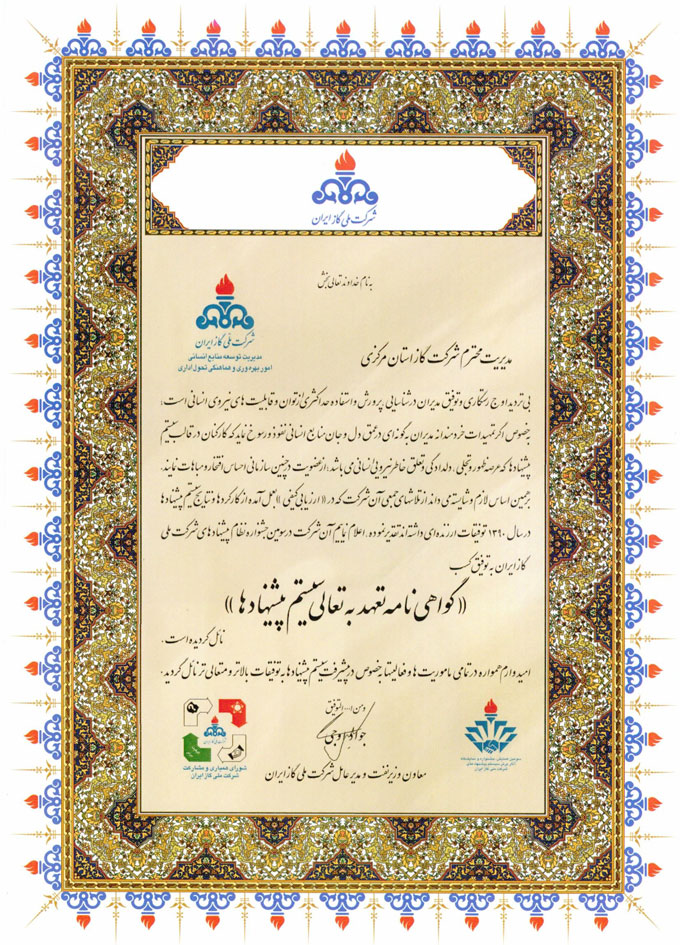 شرکت ملی گاز ایران
به نام خداوند تعالی بخش
شرکت ملی گاز ایران
مدیریت توسعه منابع انسانی
امور بهره‌وری و هماهنگی تحول اداری
مدیریت محترم شرکت گاز استان مرکزی
بی تردید اوج رستگاری و توفیق مدیران در شناسایی، پرورش و استفاده حداکثری از توان و قابلیت های نیروی انسانی است،
بخصوص اگر تمهیدات خردمندانه مدیران به گونه ای در عمق دل و جان منابع انسانی نفوذ و رسوخ نماید که کارکنان در قالب سیستم
پیشنهادها که عرصه ظهور و تجلی، دلدادگی و تعلق خاطر نیروی انسانی می باشد، از عضویت در چنین سازمانی احساس افتخار و مباهات نمایند.
بر همین اساس لازم و شایسته می داند از تلاشهای جمعی آن شرکت که در «ارزیابی کیفی» بعمل آمده از کارکردها و نتایج سیستم پیشنهادها
در سال ۱۳۹۰ توفیقات ارزنده ای داشته اند تقدیر نموده، اعلام نمایم آن شرکت در سومین جشنواره نظام پیشنهادهای شرکت ملی
گاز ایران به توفیق کسب
«گواهی نامه تعهد به تعالی سیستم پیشنهادها»
نائل گردیده است.
امیدوارم همواره در تمامی ماموریت ها و فعالیتها بخصوص در پیشرفت سیستم پیشنهادها به توفیقات بالاتر و متعالی تر نائل گردید.
و من ا... التوفیق
جواد اوجی
معاون وزیر نفت و مدیر عامل شرکت ملی گاز ایران
شورای همیاری و مشارکت
شرکت ملی گاز ایران
سومین همایش، جشنواره و نمایشگاه
شرکت ملی گاز ایران